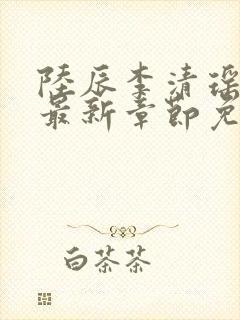 陸辰李清瑶
最新章節免
白茶茶